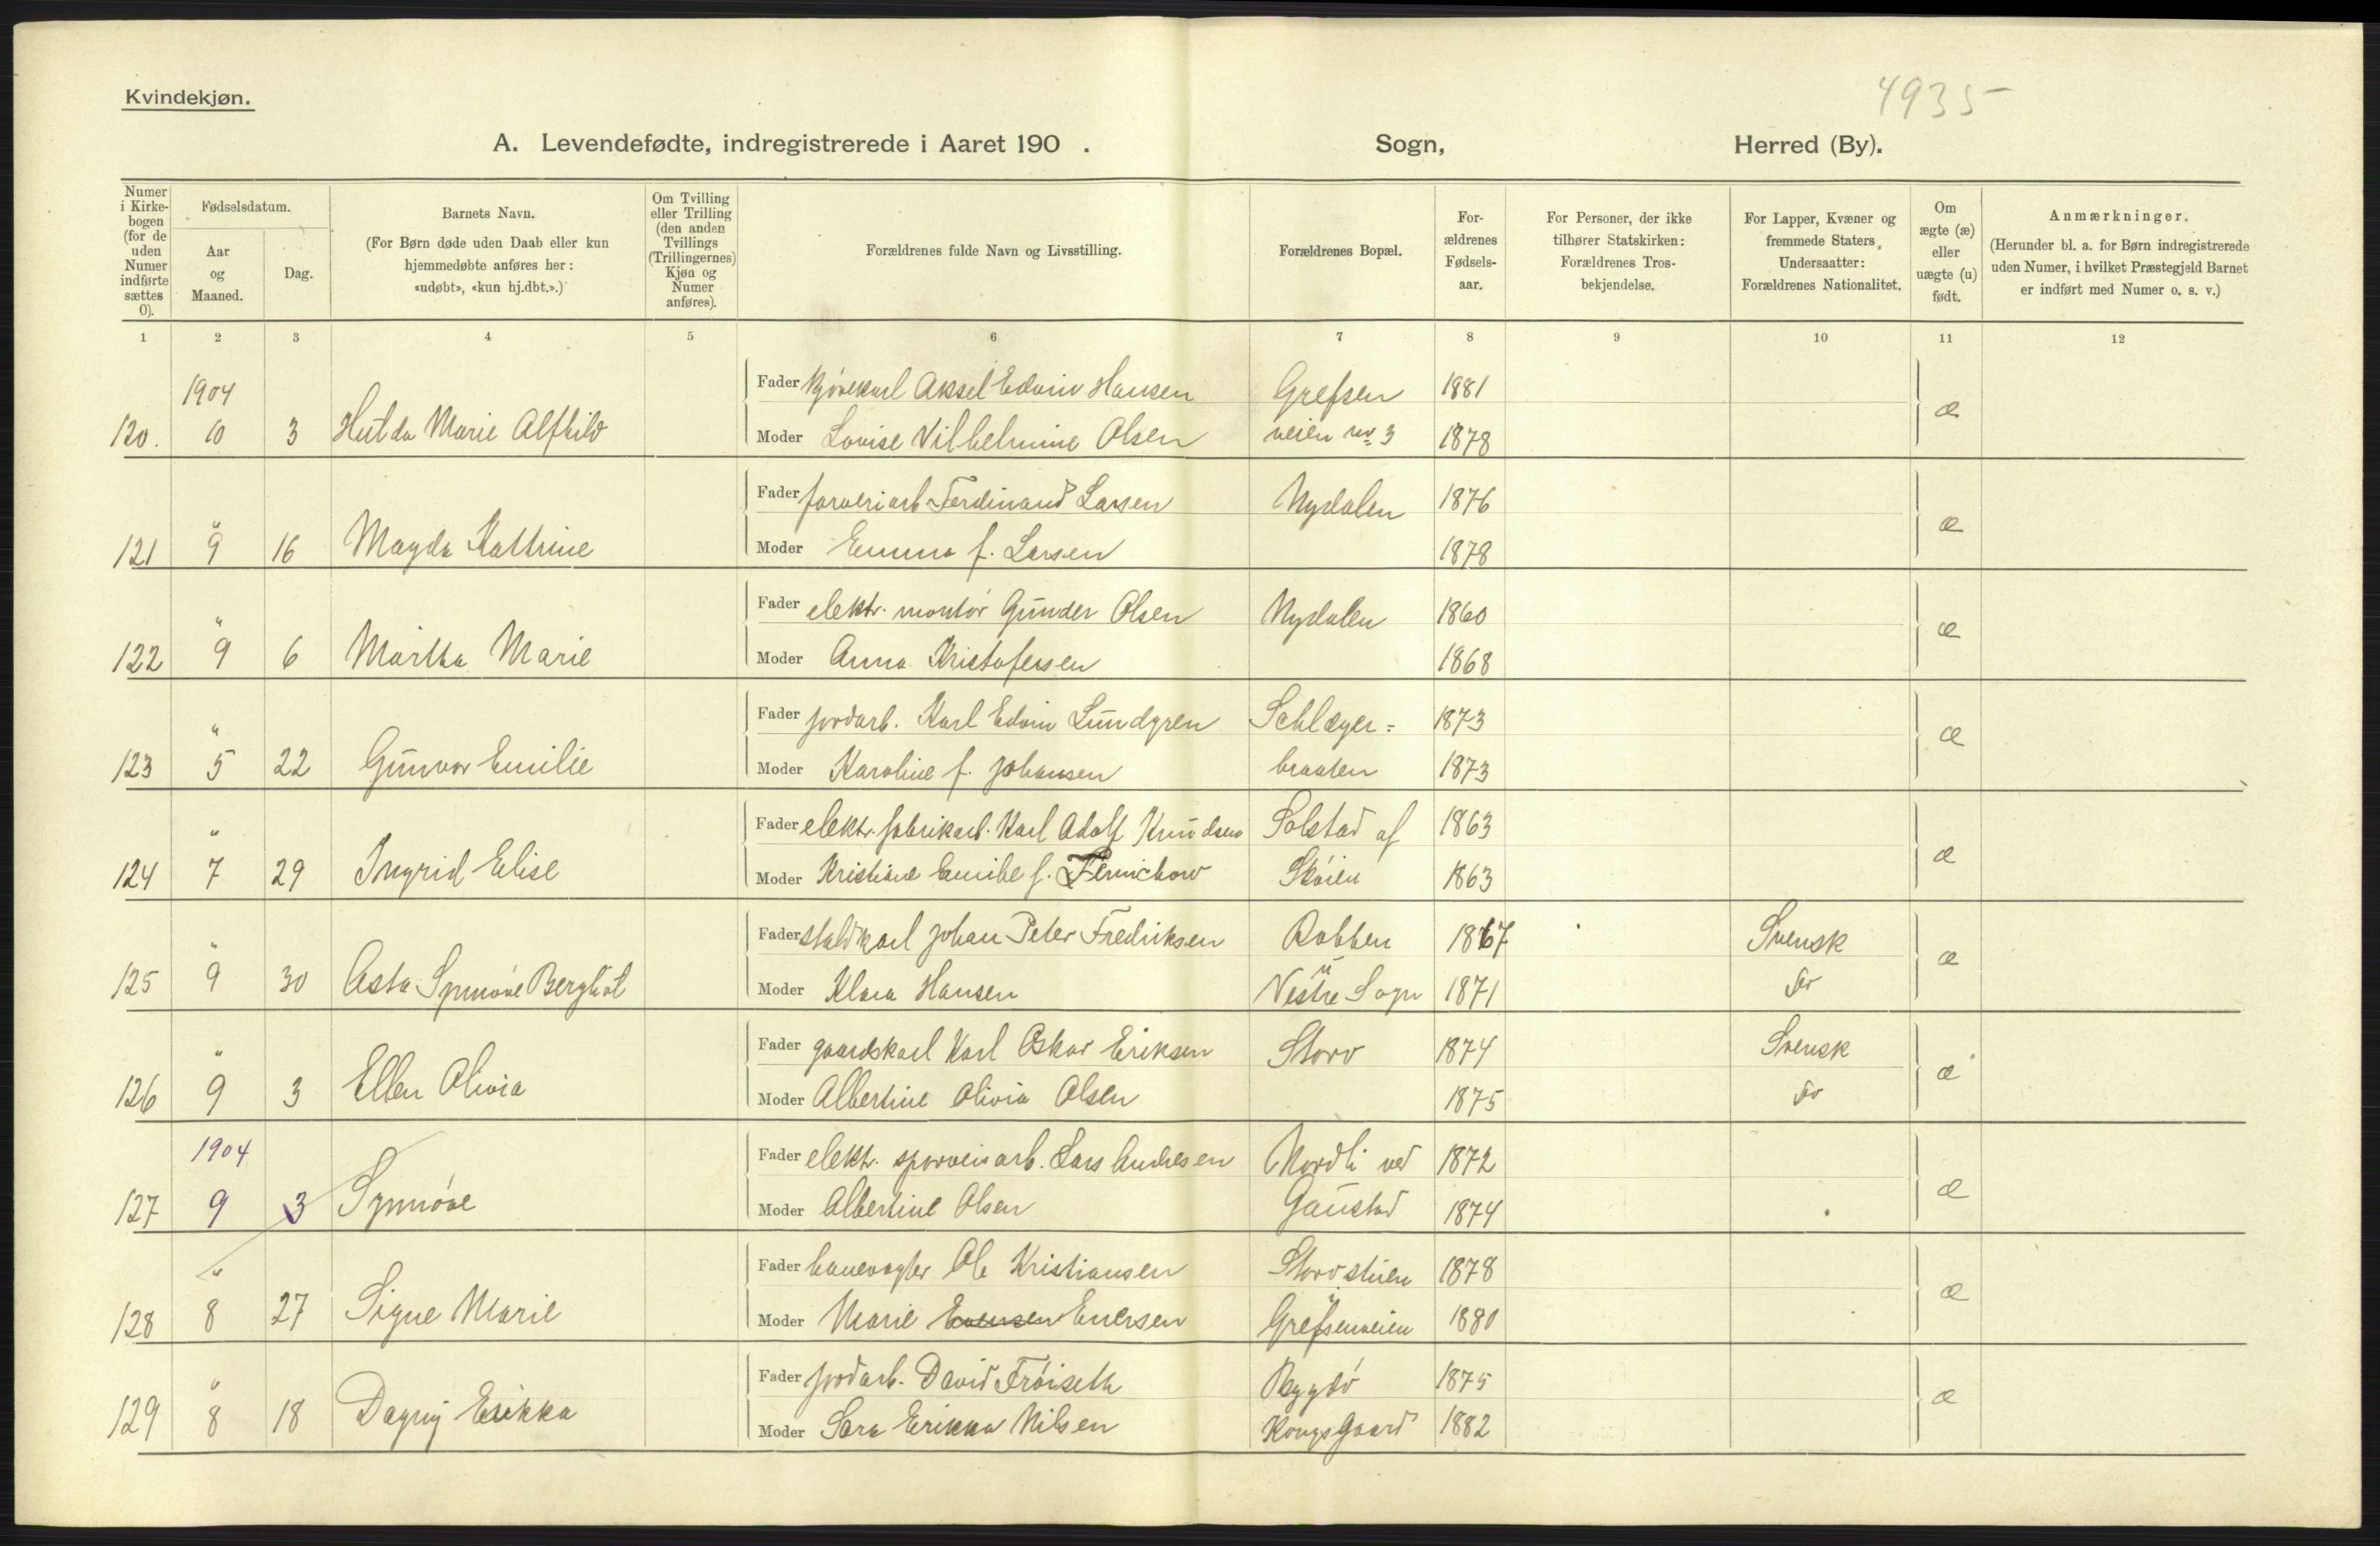 4935
Kvindekjøn.
A. Levendefødte, indregistrerede i Aaret 190 . Sogn, Herred (By).
Numer i Kirke-bogen (for de uden Numer indførte sættes 0).
Fødselsdatum.
Aar og Maaned.
Dag.
Barnets Navn.
(For Børn døde uden Daab eller kun hjemmedøbte anføres her: «udøbt», «kun hj.dbt.».)
Om Tvilling eller Trilling (den anden Tvillings (Trillingernes) Kjøn og Numer anføres).
Forældrenes fulde Navn og Livsstilling.
Forældrenes Bopæl.
For-ældrenes Fødsels-aar.
For Personer, der ikke tilhører Statskirken: Forældrenes Tros-bekjendelse.
For Lapper, Kvæner og fremmede Staters Undersaatter: Forældrenes Nationalitet.
Om ægte (æ) eller uægte (u) født.
Anmærkninger.
(Herunder bl. a. for Børn indregistrerede uden Numer, i hvilket Præstegjeld Barnet er indført med Numer o. s. v.)
1 2 3 4 5 6 7 8 9 10 11 12
1904 Fader Aksel Edvin Hansen Grefsen 1881
120. 10 3 Hulda Marie Alfhild Moder Lovise Vilhelmine Olsen veien no 3 1878 æ
" Fader farveriarb. Ferdinand Larsen Nydalen 1876
121 9 16 Magda Kathrine Moder Emma f. Larsen 1878 æ
" Fader elektr. montør Gunder Olsen Nydalen 1860
122 9 6 Martha Marie Moder Anna Kristofersen 1868 æ
" Fader jordarb. Karl Edvin Lundgren Schlæger= 1873
123 5 22 Gunvor Emilie Moder Karoline f. Johansen braaten 1873 æ
" Fader elektr. fabrikarb. Karl Adolf Knudsen Solstad af 1863
124 7 29 Ingrid Elise Moder Kristiane Emilie f. Skøien 1863 æ
" Fader staldkarl Johan Peter Fredriksen Rabben 1867 Svensk
125 9 30 Asta Synnøve Bergliot Moder Klara Hansen Vestre Sogn 1871 do æ
" Fader gaardskarl Karl Oskar Eriksen Storo 1874 Svensk
126 9 3 Ellen Olivia Moder Albertine Olivia Olsen 1875 do æ
1904 Fader elektr. sporveisarb. Lars Andresen Nordli ved 1872
127 9 3 Synnøve Moder Albertine Olsen Gaustad 1874 æ
" Fader banevogter Ole Kristiansen Storostuen 1878
128 8 27 Signe Marie Moder Marie Evensen Enersen Grefsenveien 1880 æ
" Fader jordarb. David Frøiseth Bygdø 1875
129 8 18 Dagny Erikka Moder Sara Erikka Nilsen Kongsgaard 1882 æ